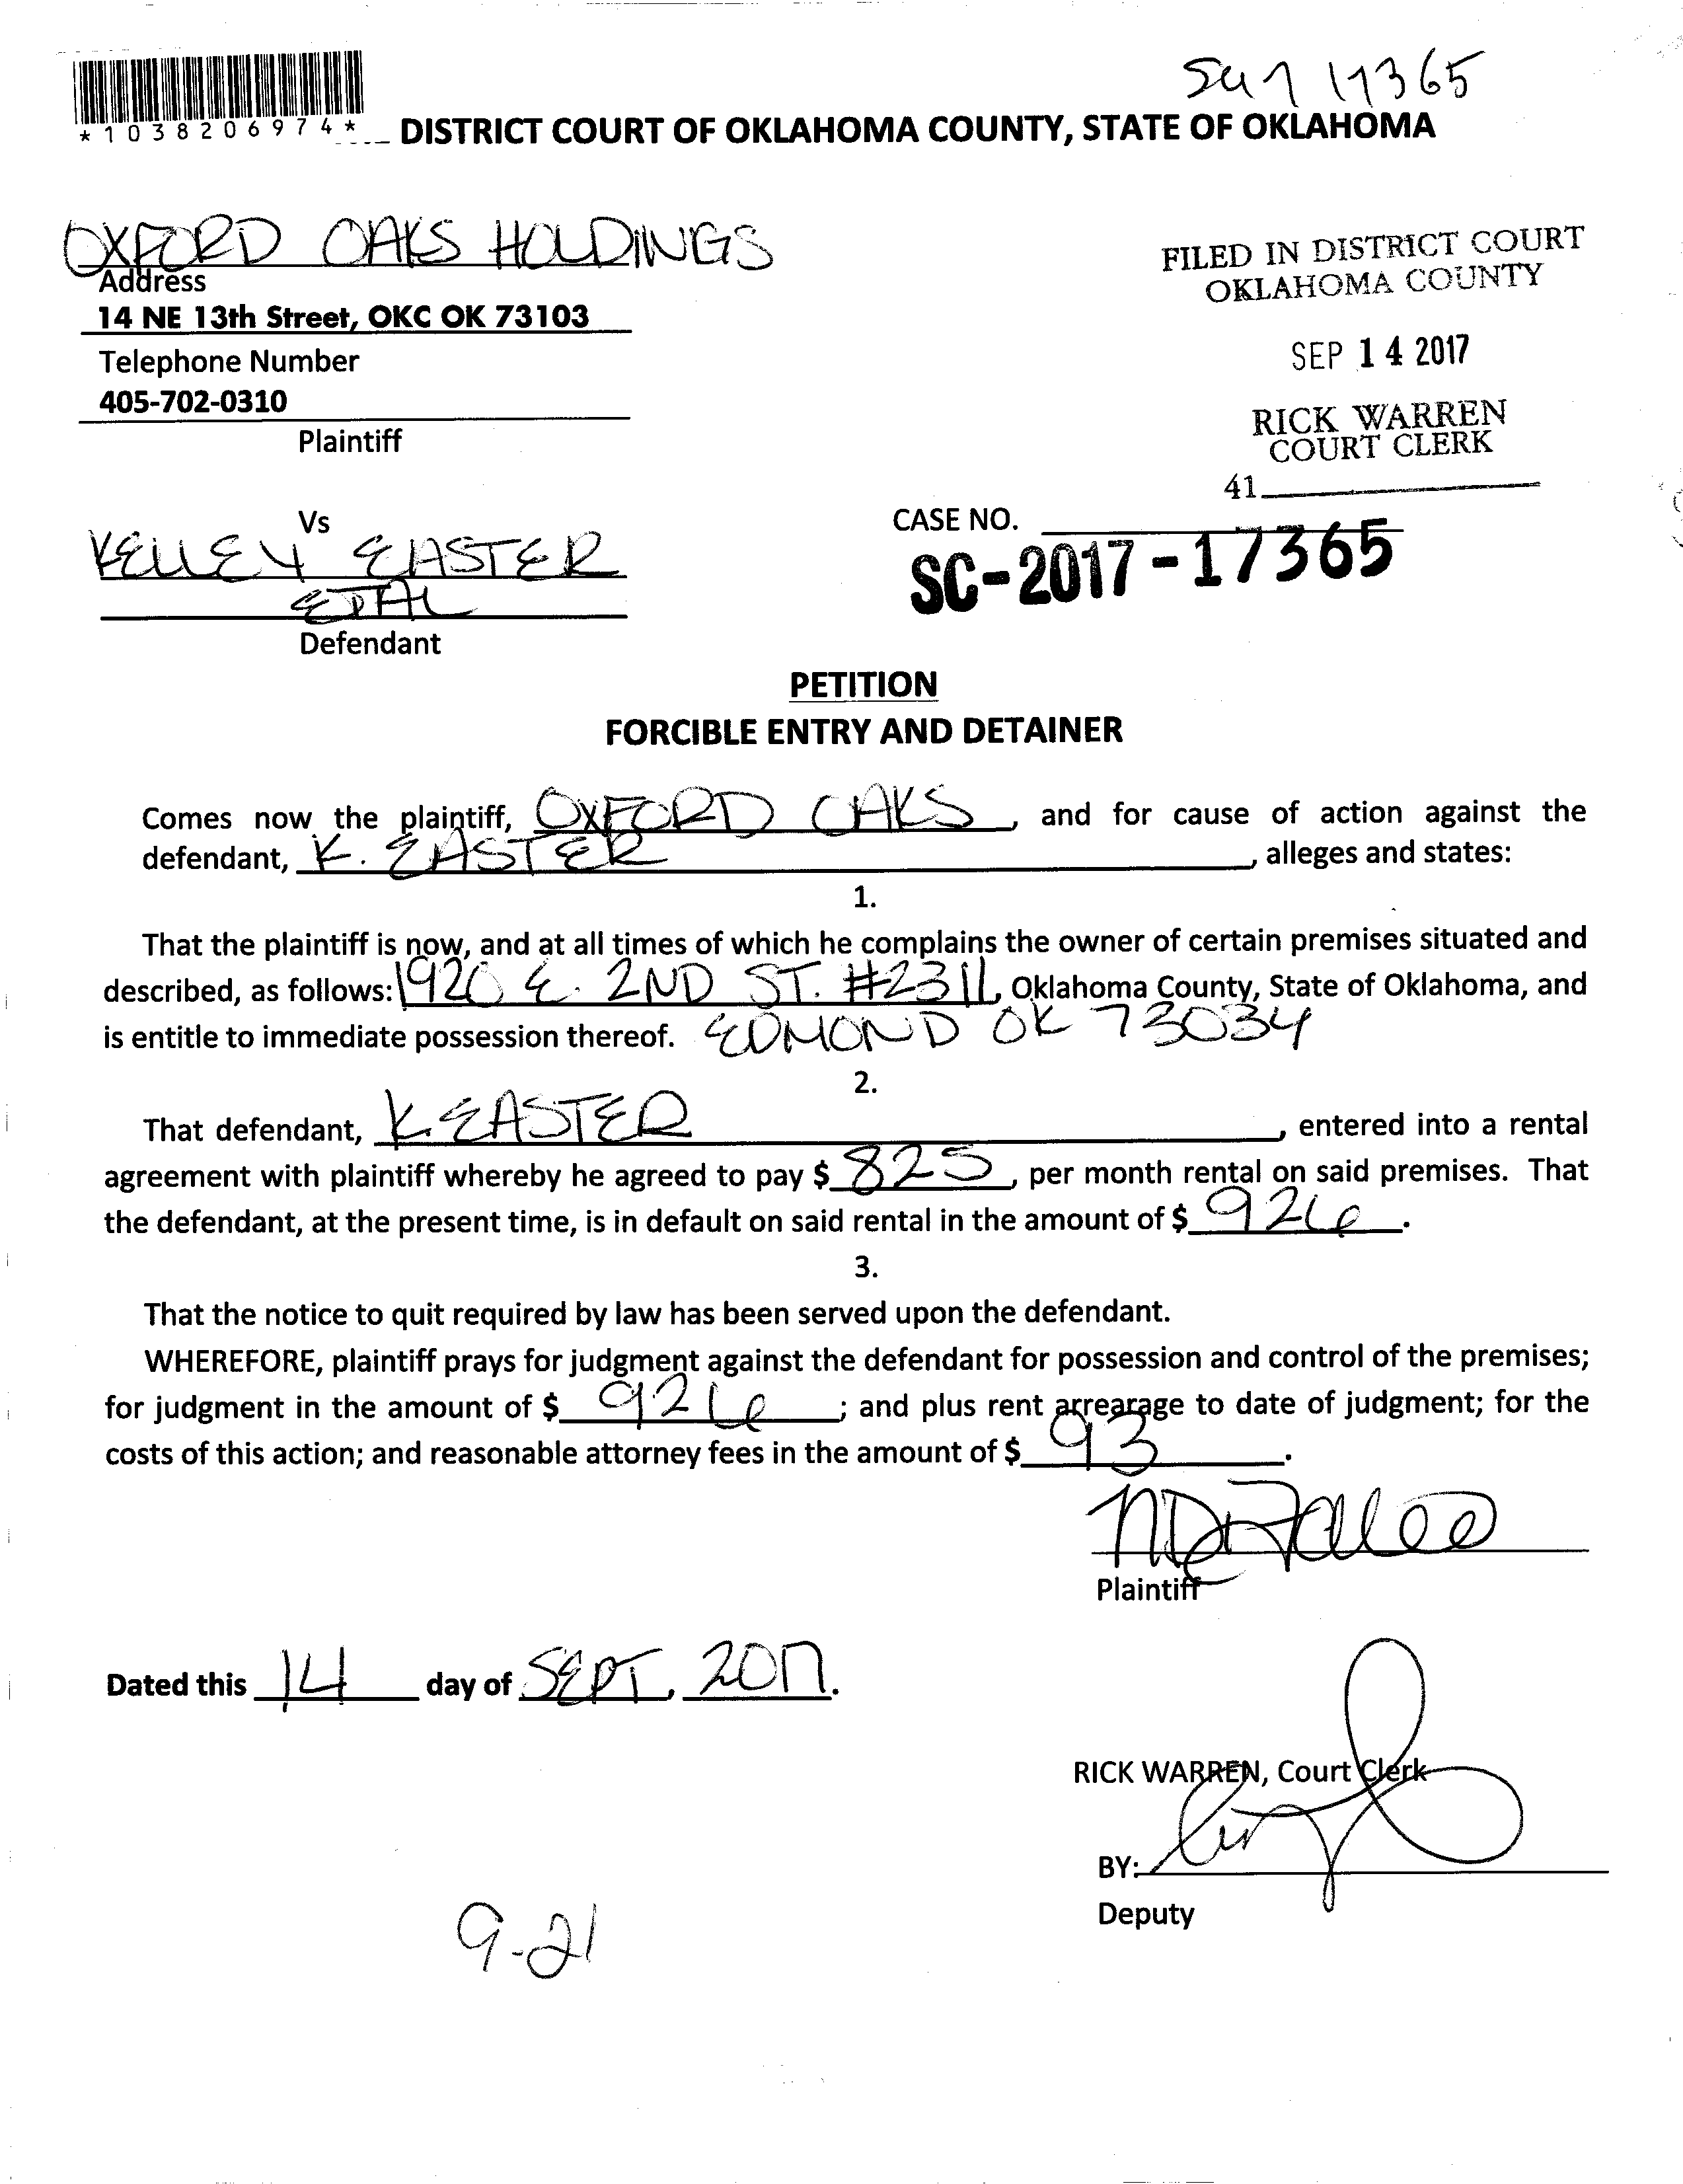 SC17 17365
*1038206974*
DISTRICT COURT OF OKLAHOMA COUNTY, STATE OF OKLAHOMA
OXFORD OAKS HOLDINGS
Address
14 NE 13th Street, OKC OK 73103
Telephone Number
405-702-0310
Plaintiff
FILED IN DISTRICT COURT
OKLAHOMA COUNTY
SEP 14 2017
RICK WARREN
COURT CLERK
41
Vs
KELLEY EASTER
ETAL
Defendant
CASE NO.
SC-2017-17365
PETITION
FORCIBLE ENTRY AND DETAINER
Comes now the plaintiff, OXFORD OAKS, and for cause of action against the
defendant, K. EASTER, alleges and states:
1.
That the plaintiff is now, and at all times of which he complains the owner of certain premises situated and
described, as follows: 1920 E. 2ND ST. #2311, Oklahoma County, State of Oklahoma, and
is entitle to immediate possession thereof. EDMOND OK 73034
2.
That defendant, K. EASTER, entered into a rental
agreement with plaintiff whereby he agreed to pay $ 825, per month rental on said premises. That
the defendant, at the present time, is in default on said rental in the amount of $ 926.
3.
That the notice to quit required by law has been served upon the defendant.
WHEREFORE, plaintiff prays for judgment against the defendant for possession and control of the premises;
for judgment in the amount of $ 926; and plus rent arrearage to date of judgment; for the
costs of this action; and reasonable attorney fees in the amount of $ 93.
Plaintiff
Dated this 14 day of SEPT, 2017.
RICK WARREN, Court Clerk
BY:
Deputy
9-21